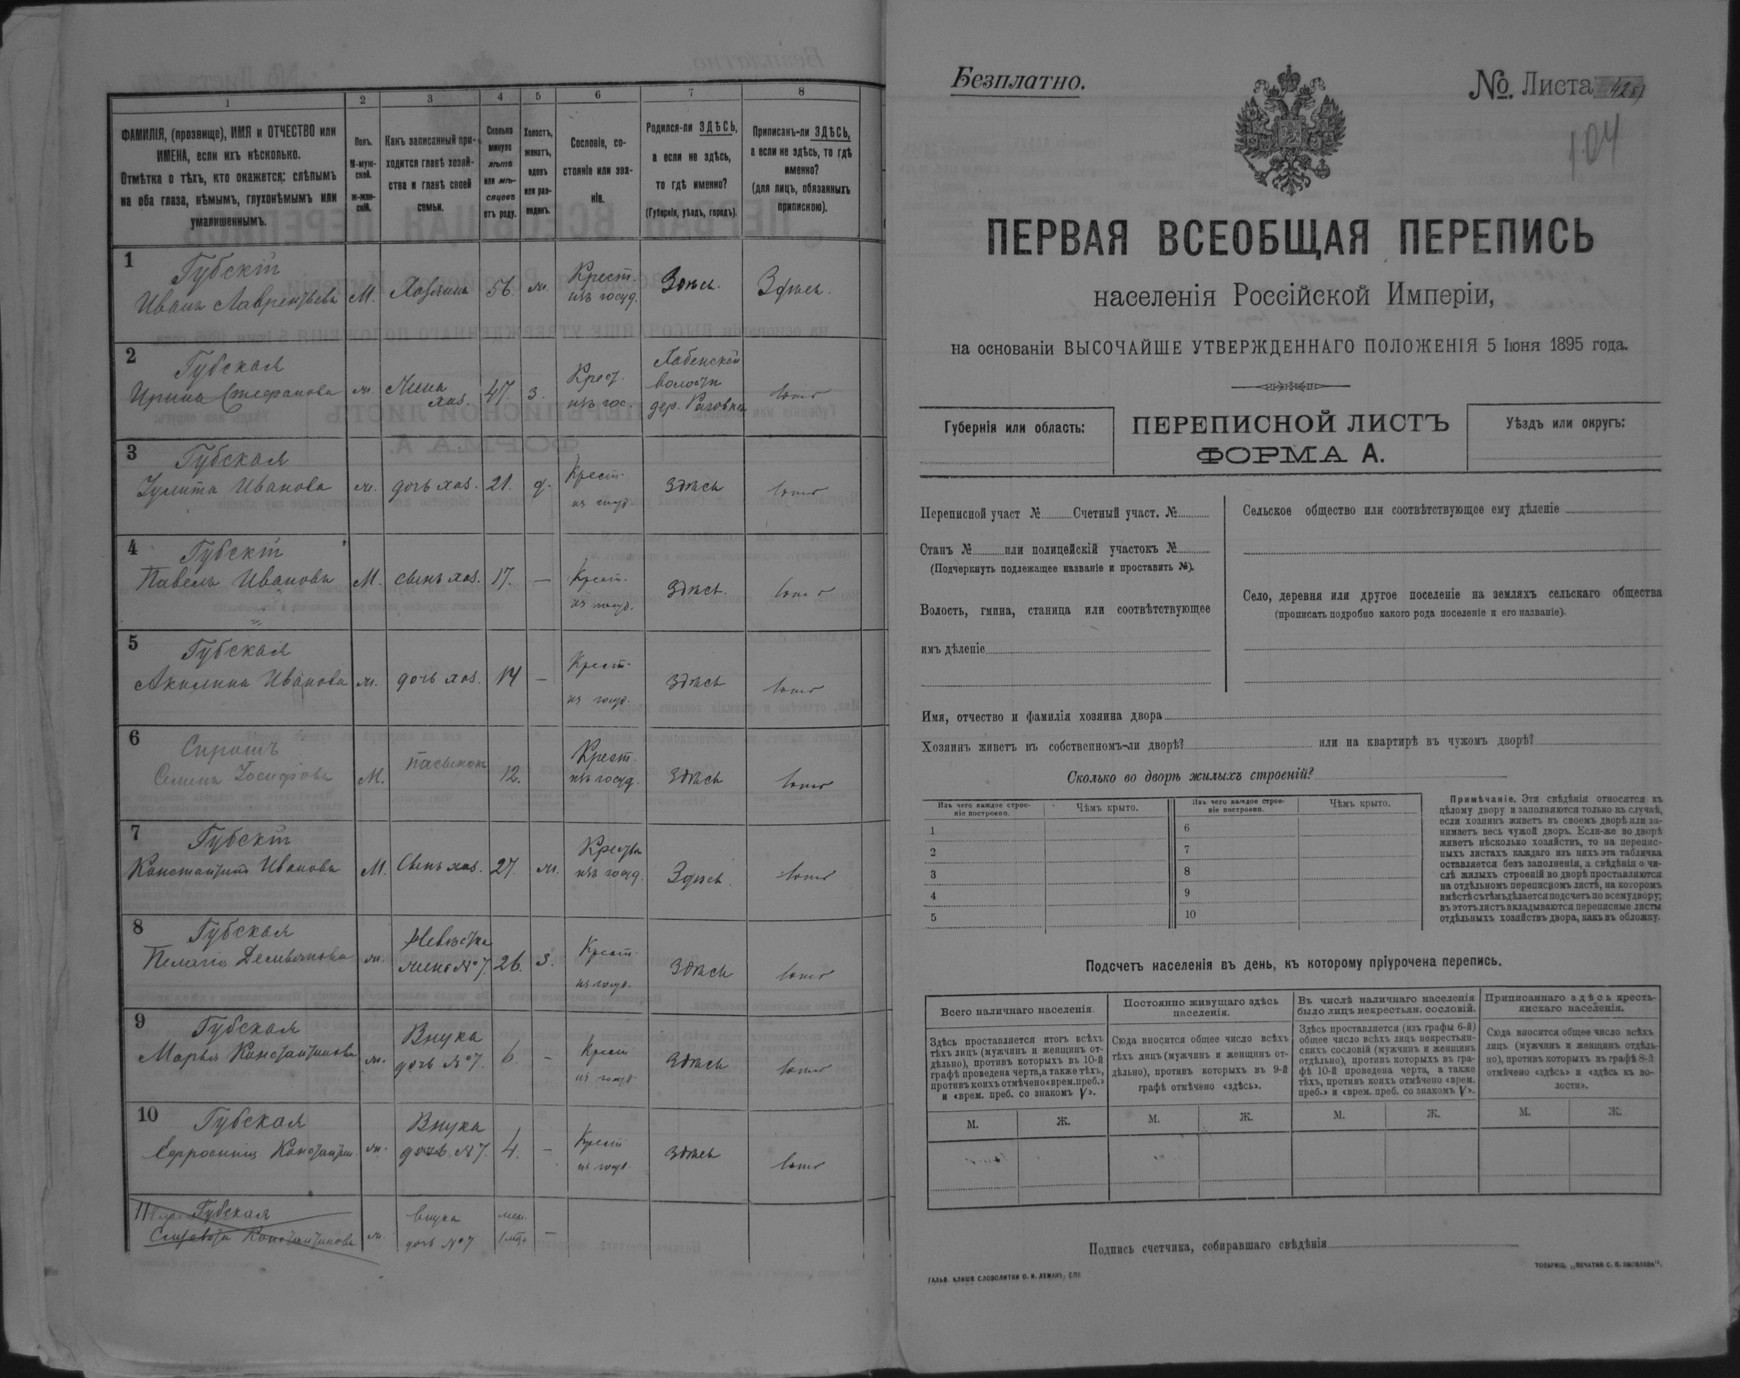 1 2 3 4 5 6 7 8
ФАМИЛІЯ, (прозвище), ИМЯ и ОТЧЕСТВО или ИМЕНА, если ихъ нѣсколько.
Отмѣтка о тѣхъ, кто окажется: слѣпымъ на оба глаза, нѣмымъ, глухонѣмымъ или умалишеннымъ.
Полъ. М-мужской. ж-женскій.
Какъ записанный приходится главѣ хозяйства и главѣ своей семьи.
Сколько минуло лѣтъ или мѣсяцевъ отъ роду.
Холостъ, женатъ, вдовъ или разведенъ.
Сословіе, состояніе или званіе.
Родился-ли ЗДѢСЬ, а если не здѣсь, то гдѣ именно? (Губернія, уѣздъ, городъ).
Приписанъ-ли ЗДѢСЬ, а если не здѣсь, то гдѣ именно? (для лицъ, обязанныхъ припискою).
1 Губскій
Иванъ Лаврентьевъ М. Хозяинъ 56. ж. Крест. изъ госуд. Здѣсь. Здѣсь.
2 Губская
Ирина Стефанова ж. Жена хоз. 47. з. Крест. изъ гос. волости дер.
3 Губская
Іулита Иванова ж. дочь хоз. 21. д. Крест. из госуд. Здѣсь
4 Губскій
Павелъ Ивановъ М. сынъ хоз. 17. — Крест. из госуд. Здѣсь.
5 Губская
Акилина Иванова ж. дочь хоз. 14 — Крест. из госуд. Здѣсь
6
М. пасынокъ 12. Крест. изъ госуд. Здѣсь
7 Губскій
Константинъ Ивановъ М. Сынъ хоз. 27. ж. изъ госуд. Здѣсь.
8 Губская
ж. Невѣстка жена №7. 26. з. Крест. из госуд. Здѣсь
9 Губская
Марья Константинова ж. Внука дочь №7. 6. - Крест из госуд Здѣсь
10 Губская
ж. Внука дочь №7. 4. - Крест из госуд. Здѣсь
11 Губская
Константинова ж. внука дочь №7 —
Безплатно.
№. Листа
104
ПЕРВАЯ ВСЕОБЩАЯ ПЕРЕПИСЬ
населенія Россійской Имперіи,
на основаніи ВЫСОЧАЙШЕ УТВЕРЖДЕННАГО ПОЛОЖЕНІЯ 5 Іюня 1895 года.
Губернія или область:
ПЕРЕПИСНОЙ ЛИСТЪ
ФОРМА А.
Уѣздъ или округъ:
Переписной участ № Счетный участ. №
Станъ № или полицейскій участокъ №
(Подчеркнуть подлежащее названіе и проставить №).
Волость, гмина, станица или соотвѣтствующее
имъ дѣленіе
Сельское общество или соотвѣтствующее ему дѣленіе
Село, деревня или другое поселеніе на земляхъ сельскаго общества
(прописать подробно какого рода поселеніе и его названіе).
Имя, отчество и фамилія хозяина двора
Хозяинъ живетъ въ собственномъ-ли дворѣ? или на квартирѣ въ чужомъ дворѣ?
Сколько во дворѣ жилыхъ строеній?
Изъ чего каждое строеніе построено. Чѣмъ крыто. Изъ чего каждое строеніе построено. Чѣмъ крыто.
1 6
2 7
3 8
4 9
5 10
Примѣчаніе. Эти свѣдѣнія относятся къ
цѣлому двору и заполняются только въ случаѣ,
если хозяинъ живетъ въ своемъ дворѣ или за-
нимаетъ весь чужой дворъ. Если-же во дворѣ
живетъ нѣсколько хозяйствъ, то на перепис-
ныхъ листахъ каждаго изъ нихъ эта табличка
оставляется безъ заполненія, а свѣдѣнія о чи-
слѣ жилыхъ строеній во дворѣ проставляются
на отдѣльномъ переписномъ листѣ, на которомъ
вмѣстѣ съ тѣмъ дѣлается подсчетъ по всему двору;
въ этотъ листъ вкладываются переписные листы
отдѣльныхъ хозяйствъ двора, какъ въ обложку.
Подсчетъ населенія въ день, къ которому пріурочена перепись.
Всего наличнаго населенія.
Здѣсь проставляется итогъ всѣхъ
тѣхъ лицъ (мужчинъ и женщинъ от-
дѣльно), противъ которыхъ въ 10-й
графѣ проведена черта, а также тѣхъ,
противъ коихъ отмѣчено «врем. преб.»
и «врем. преб. со знакомъ V».
Постоянно живущаго здѣсь населенія.
Сюда вносится общее число всѣхъ
тѣхъ лицъ (мужчинъ и женщинъ от-
дѣльно), противъ которыхъ въ 9-й
графѣ отмѣчено «здѣсь».
Въ числѣ наличнаго населенія было лицъ некрестьян. сословій.
Здѣсь проставляется (изъ графы 6-й)
общее число всѣхъ лицъ некрестьян-
скихъ сословій (мужчинъ и женщинъ
отдѣльно), противъ которыхъ въ гра-
фѣ 10-й проведена черта, а также
тѣхъ, противъ коихъ отмѣчено «врем.
преб.» и «врем. преб. со знакомъ V».
Приписаннаго здѣсь крестьянскаго населенія.
Сюда вносится общее число всѣхъ
лицъ (мужчинъ и женщинъ отдѣль-
но), противъ которыхъ въ графѣ 8-й
отмѣчено «здѣсь» и «здѣсь къ во-
лости».
М. Ж. М. Ж. М. Ж. М. Ж.
Подпись счетчика, собиравшаго свѣдѣнія
ГАЛЬВ. КЛИШЕ СЛОВОЛИТНИ О. И. ЛЕМАНЪ, СПБ